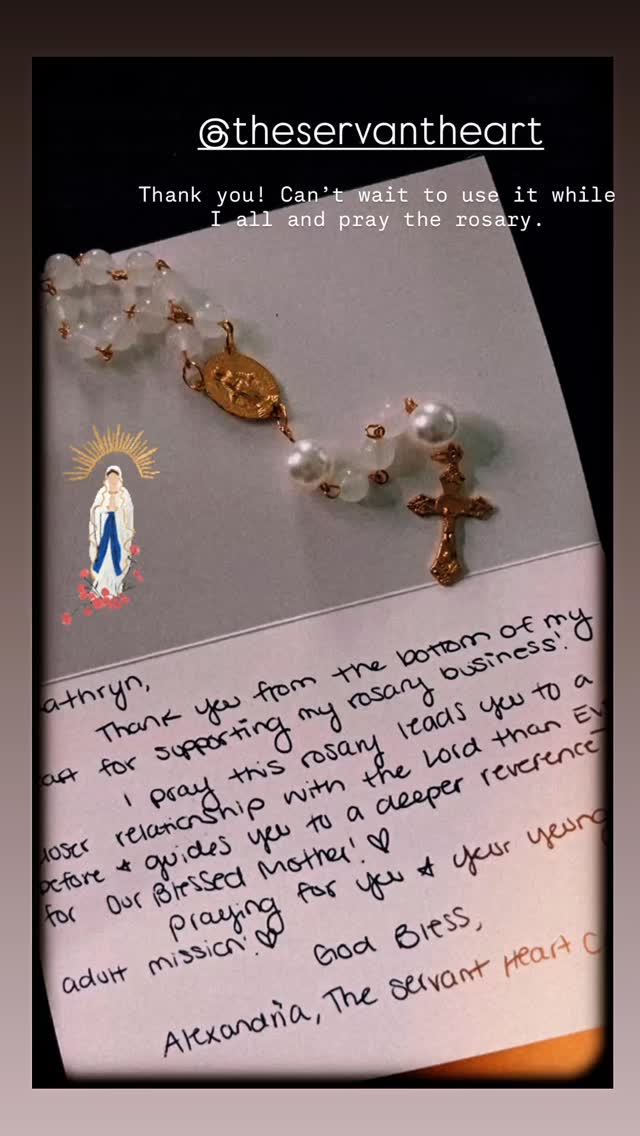 @theservantheart
Thank you! Can't wait to use it while
I all and pray the rosary.
athryn,
Thank you from the bottom of my
art for supporting my rosary business!
I pray this rosary leads you to a
loser relationship with the Lord than Ev
before & guides you to a deeper reverence
for Our Blessed Mother! ♡
praying for you & your young
adult mission! ♡
God Bless,
Alexandria, The Servant Heart C